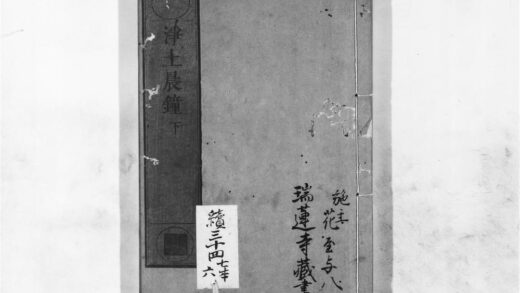 施主
花屋与八
瑞蓮寺藏書
淨土晨鐘 下
續三十四
六